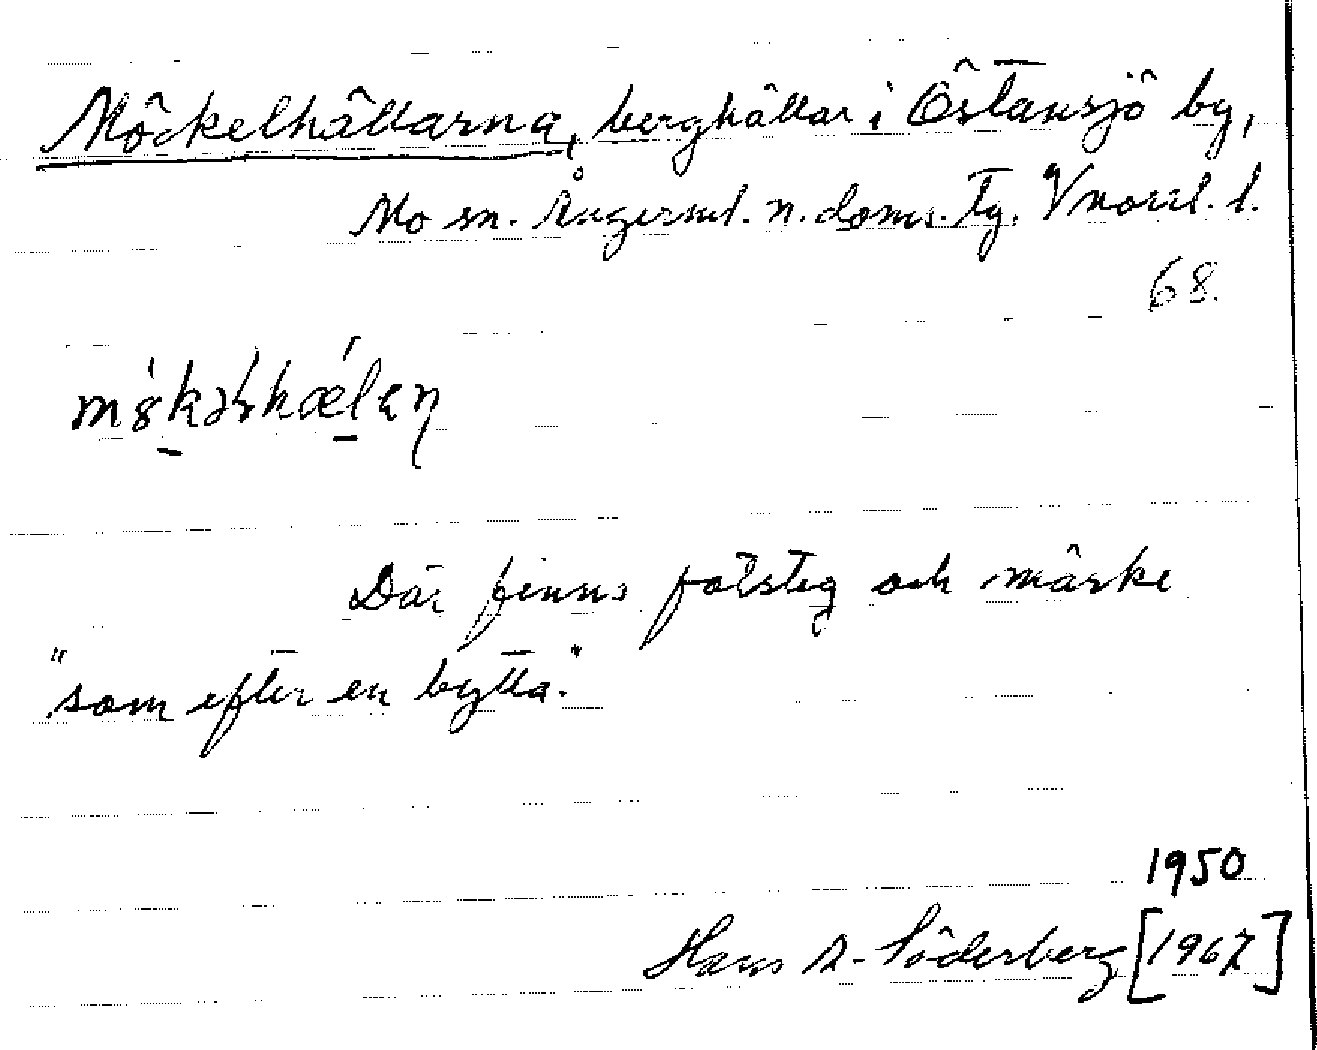 Möckelhällarna, berghällar i Östansjö by,
Mo sn. Ångerml. n. doms. tg. Vnorrl. l.
68.
Där finns fotsteg och märke
"som efter en bytta."
1950
Hans A. Söderberg [1967]